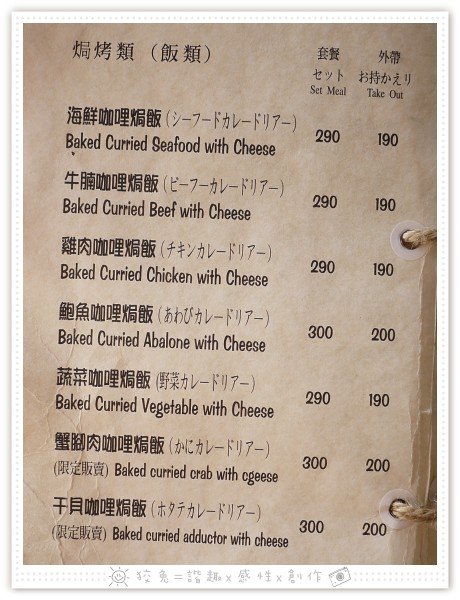 焗烤類（飯類）
套餐 外帶
セット お持かえリ
Set Meal Take Out
海鮮咖哩焗飯(シーフードカレードリアー) 290 190
Baked Curried Seafood with Cheese
牛腩咖哩焗飯(ビーフーカレードリアー) 290 190
Baked Curried Beef with Cheese
雞肉咖哩焗飯(チキンカレードリアー) 290 190
Baked Curried Chicken with Cheese
鮑魚咖哩焗飯(あわびカレードリアー) 300 200
Baked Curried Abalone with Cheese
蔬菜咖哩焗飯(野菜カレードリアー) 290 190
Baked Curried Vegetable with Cheese
蟹腳肉咖哩焗飯(かにカレードリアー) 300 200
(限定販賣) Baked curried crab with cgeese
干貝咖哩焗飯(ホタテカレードリアー) 300 200
(限定販賣) Baked curried adductor with cheese
狡兔=諧趣x感性x創作